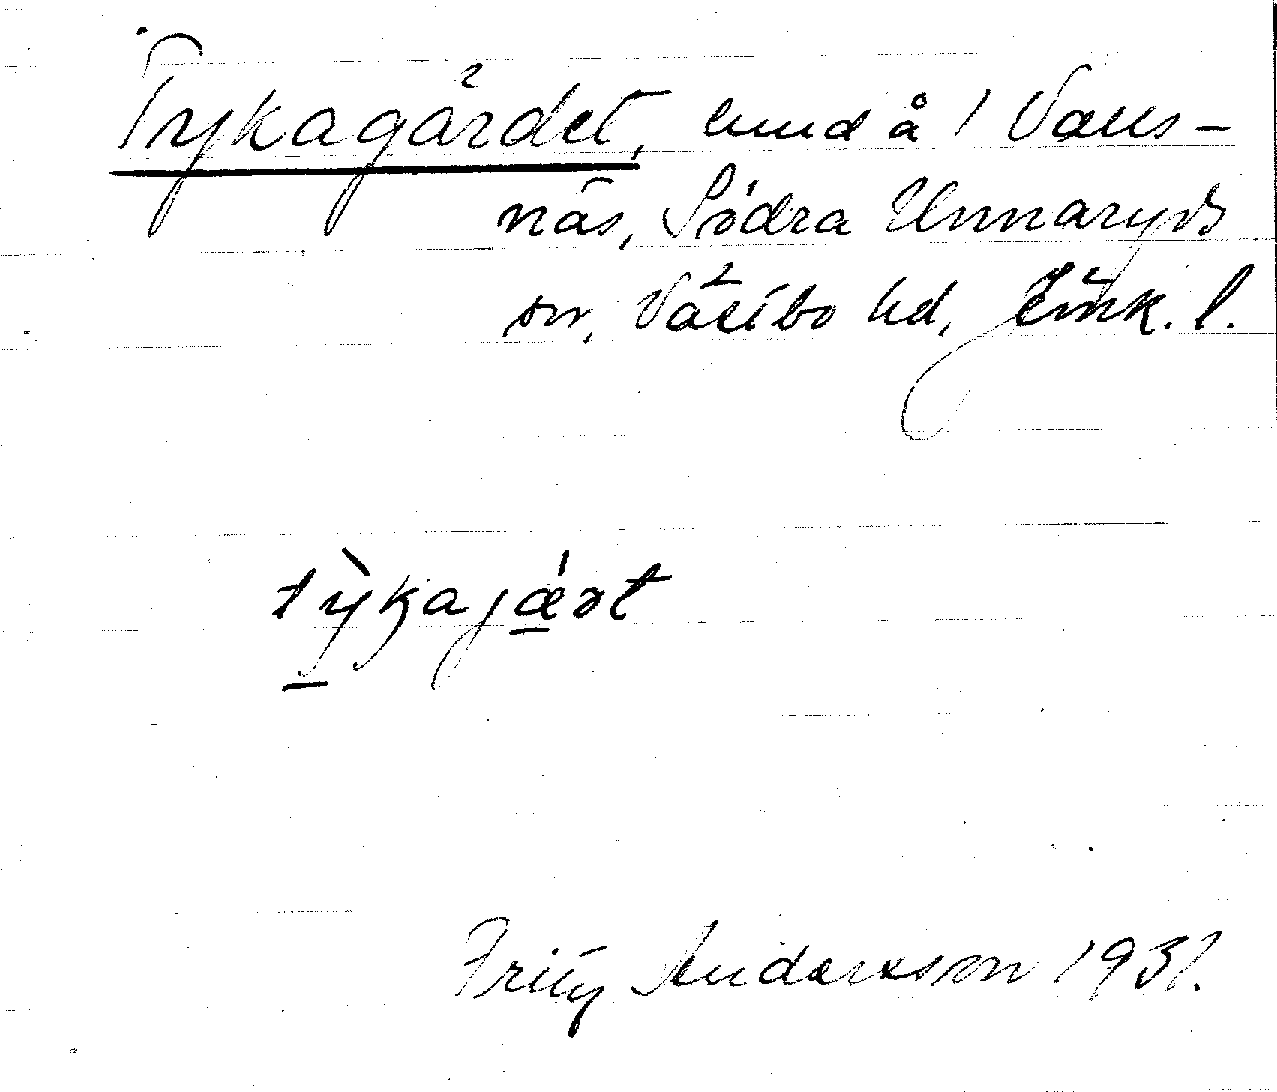 Tykagärdet, lund å 1 Vaus-
näs, Södra Unnaryds
sn, Västbo hd, Jönk. l.
tỳkajá̱rt
Fritz Andersson 1931.